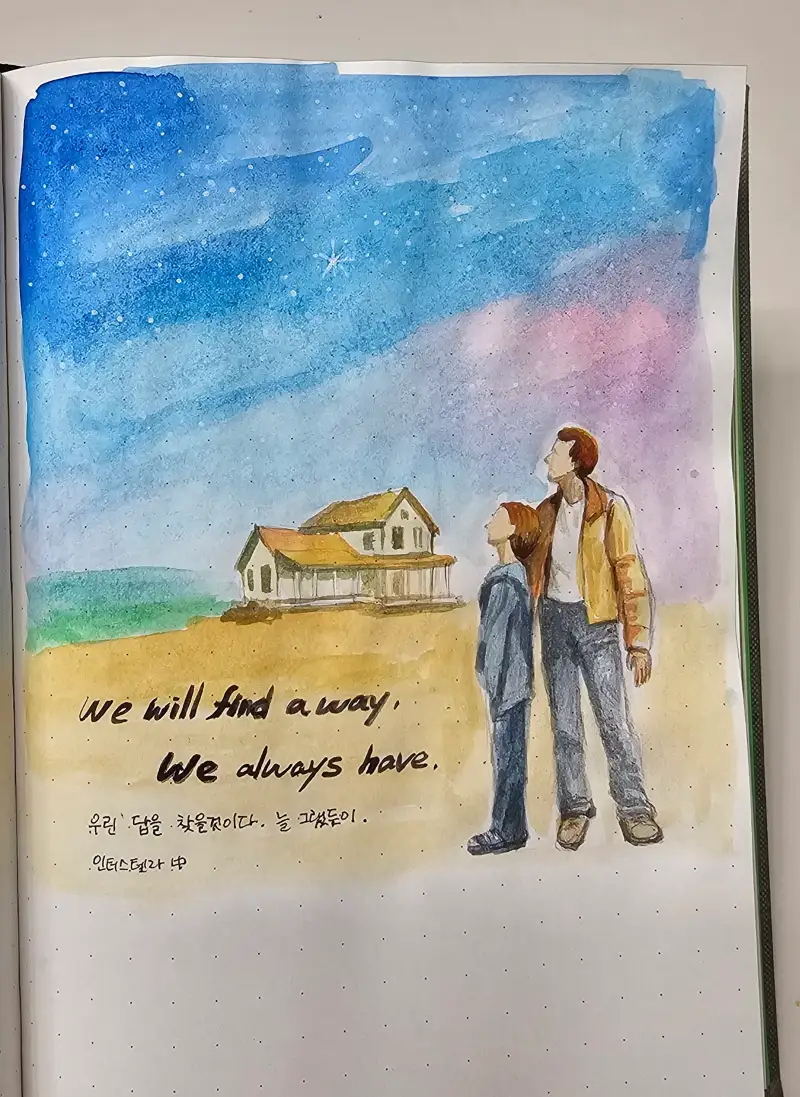 We will find a way.
We always have.
우린 답을 찾을것이다. 늘 그랬듯이.
인터스텔라 中